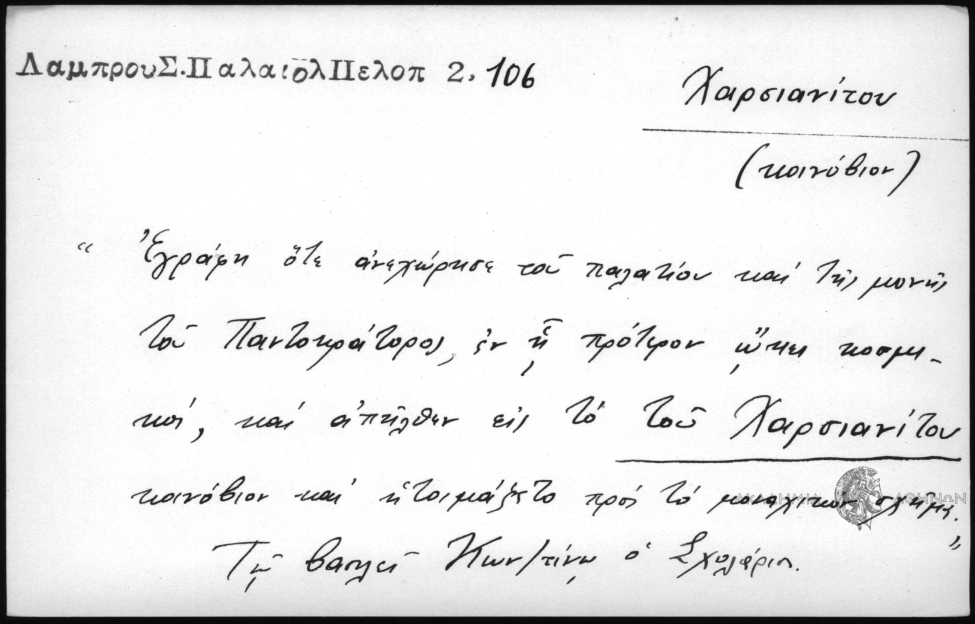 ΛαμπρουΣ.ΠαλαιόλΠελοπ 2, 106
Χαρσιανίτου
(κοινόβιον)
“ Ἐγράφη ὅτε ἀνεχώρησε τοῦ παλατίου καί τῆς μονῆς
τοῦ Παντοκράτορος, ἐν ᾗ πρότερον ᾤκει κοσμι-
κός, καί ἀπῆλθεν εἰς τό τοῦ Χαρσιανίτου
κοινόβιον καί ἡτοιμάζετο πρός τό μοναχικόν σχῆμα.”
ΑΚΑΔΗΜΙΑ ΑΘΗΝΩΝ
Τῷ βασιλεῖ Κων/τίνῳ ὁ Σχολάριος.